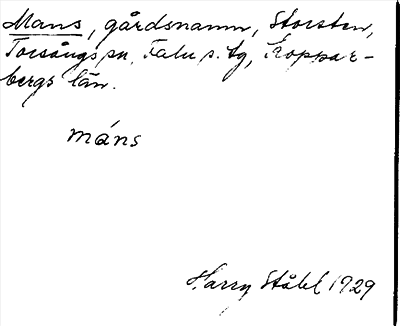 Mans, gårdsnamn, Storsten,
Torsångs sn, Falu s. tg, Koppar-
bergs län.
máns
Harry Ståhl 1929